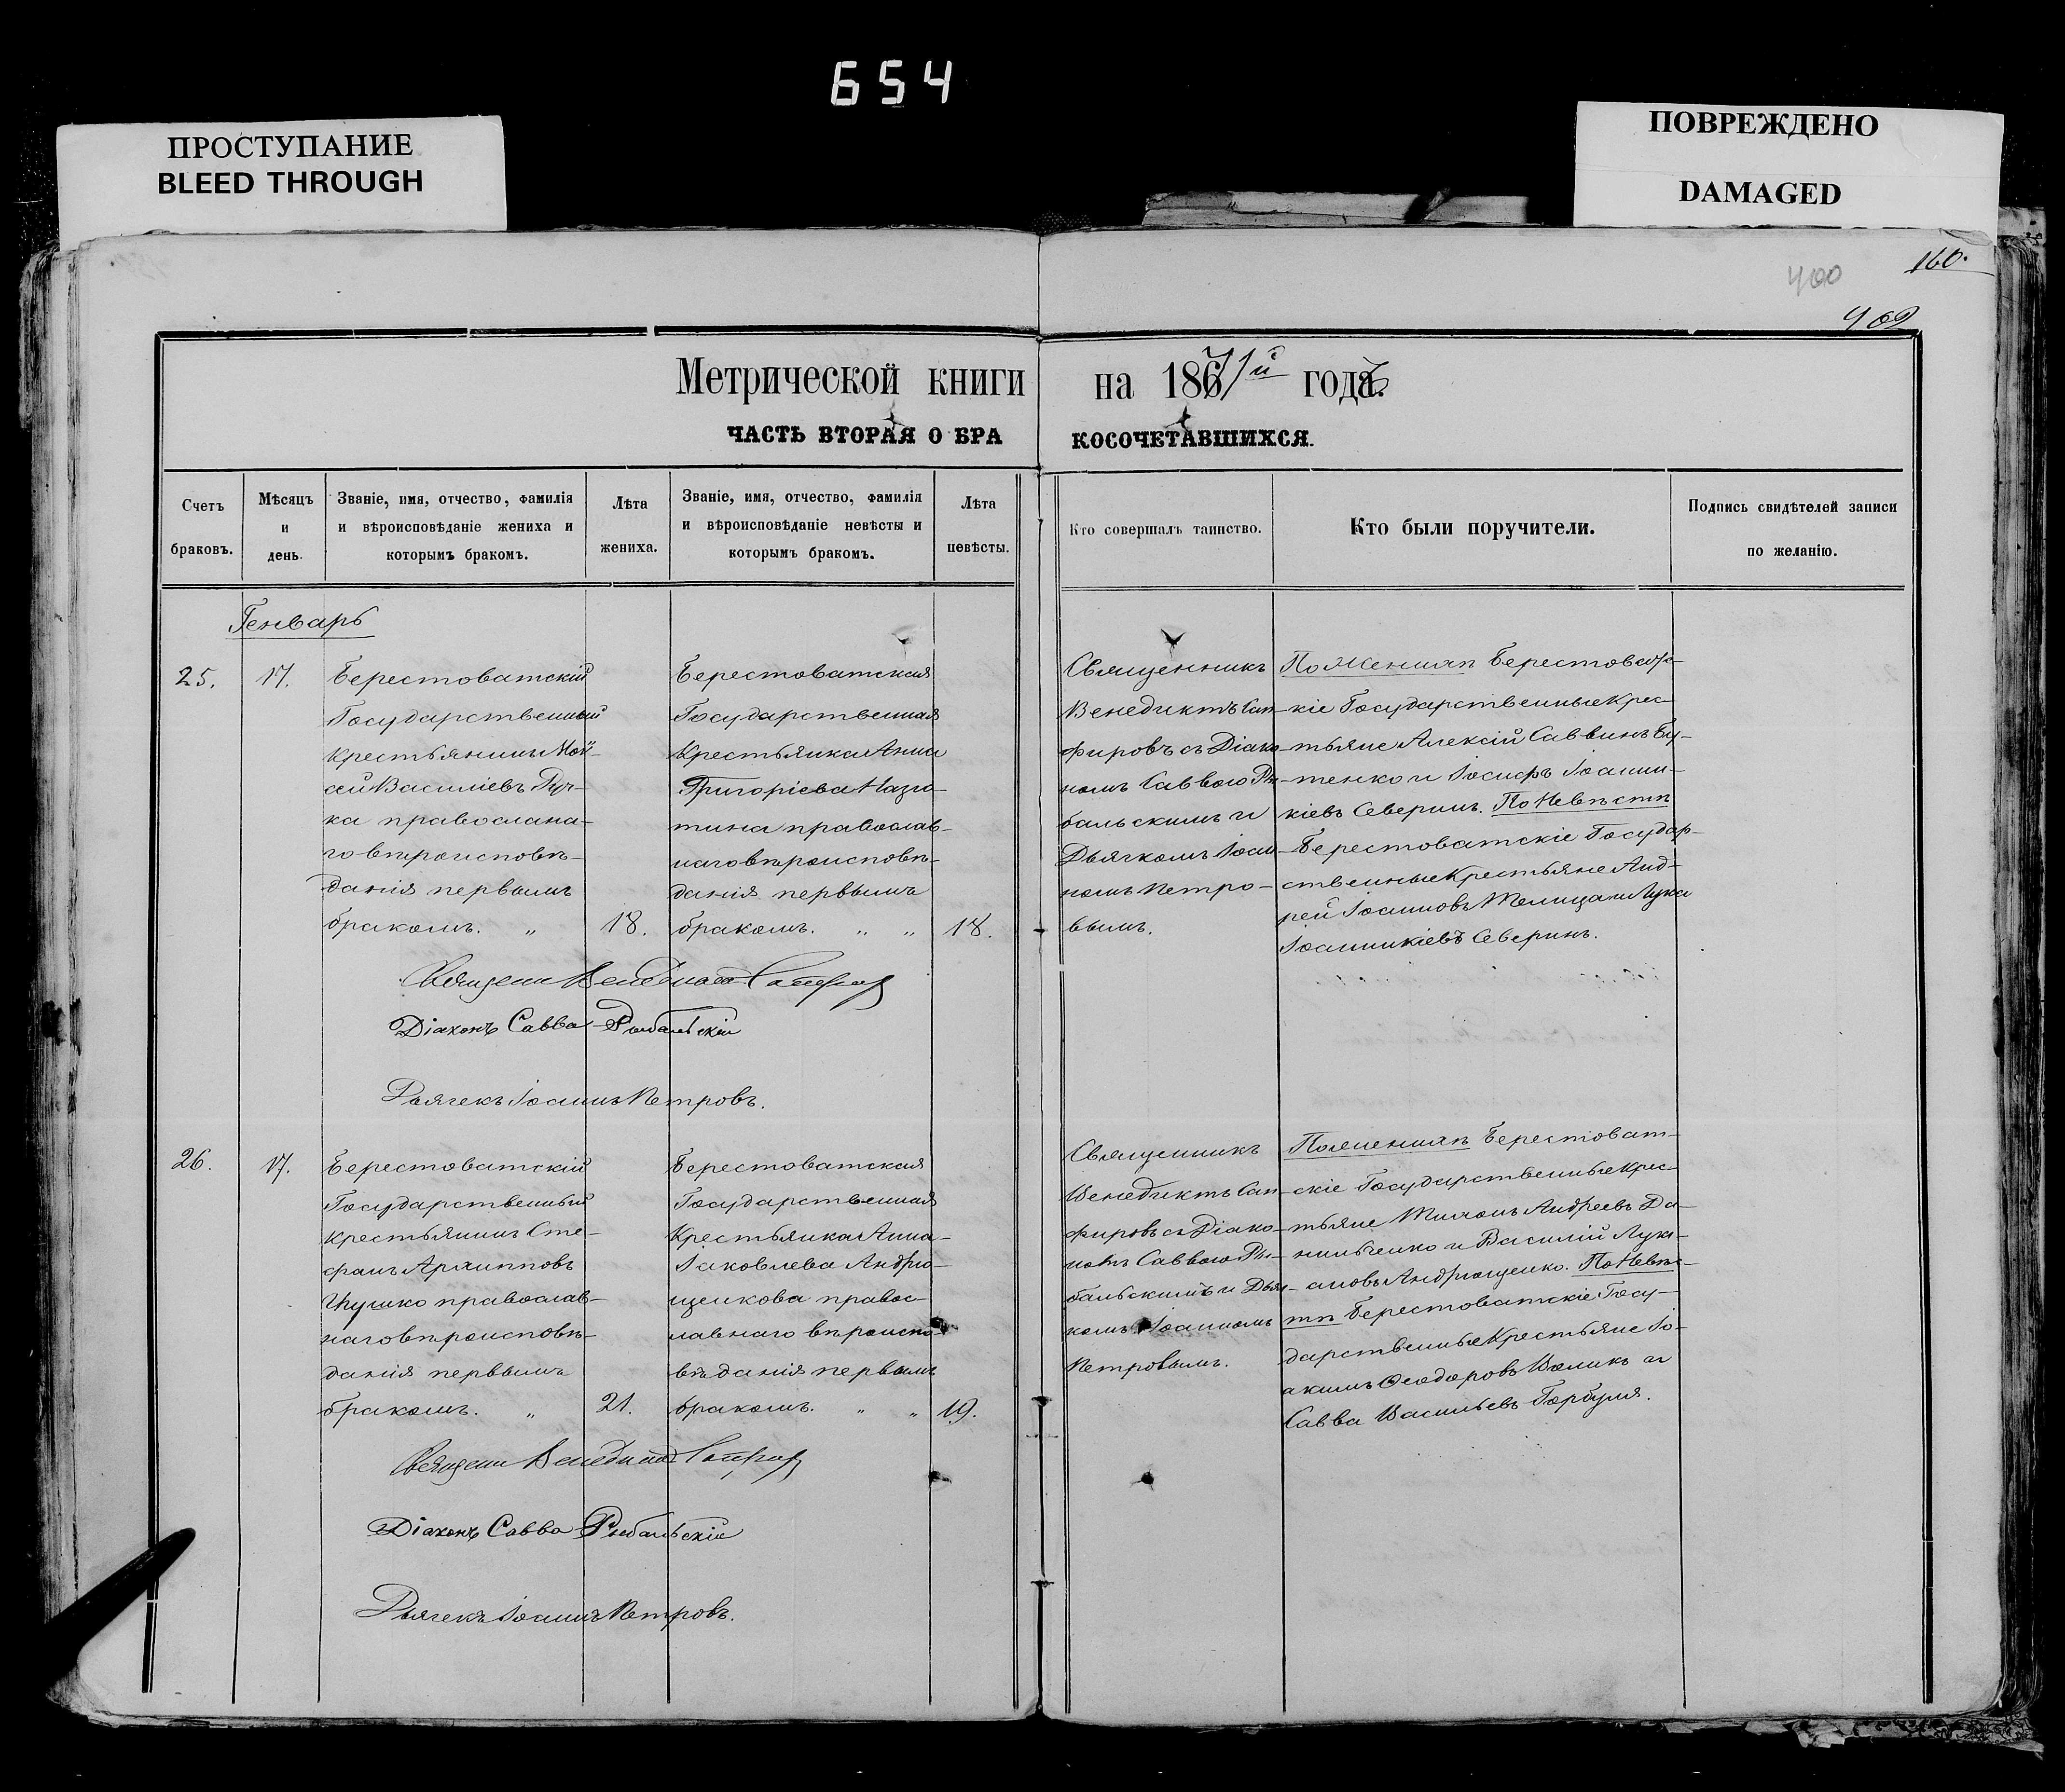 654
ПРОСТУПАНИЕ
BLEED THROUGH
ПОВРЕЖДЕНО
DAMAGED
160.
400
409
Метрической книги на 1871й годъ
ЧАСТЬ ВТОРАЯ О БРАКОСОЧЕТАВШИХСЯ.
Счетъ браковъ.
Мѣсяцъ и день.
Званіе, имя, отчество, фамилія и вѣроисповѣданіе жениха и которымъ бракомъ.
Лѣта жениха.
Званіе, имя, отчество, фамилія и вѣроисповѣданіе невѣсты и которымъ бракомъ.
Лѣта невѣсты.
Кто совершалъ таинство.
Кто были поручители.
Подпись свидѣтелей записи по желанію.
Генварь
25.
17.
Берестоватскій
Государственный
Крестьянинъ Мой-
сей Василіевъ
ка православна-
го вѣроисповѣ-
данія первымъ
бракомъ. "
18.
Берестоватская
Государственная
Крестьянка Анна
Григоріева
тина православ-
наго вѣроисповѣ-
данія первымъ
бракомъ. " "
18.
Священникъ
Венедиктъ Сап-
фировъ съ Діако-
номъ Саввою Ры-
бальскимъ и
Дьячкомъ Іоан-
номъ Петро-
вымъ.
По Женихѣ Берестоват-
скіе Государственные Крес-
тьяне Алексій Саввинъ Бу-
тенко и Іосифъ Іоанни-
кіевъ Северинъ. По Невѣстѣ
Берестоватскіе Государ-
ственные Крестьяне Анд-
рей Іоанновъ Телица и Лука
Іоанникіевъ Северинъ.
Священн Венедиктъ Сапфировъ
Діаконъ Савва Рыбальскій
Дьячекъ Іоаннъ Петровъ.
26.
17.
Берестоватскій
Государственный
Крестьянинъ Сте-
фанъ Архипповъ
православ-
наго вѣроисповѣ-
данія первымъ
бракомъ. "
21.
Берестоватская
Государственная
Крестьянка Анна
Іаковлева Андрю-
щенкова правос-
лавнаго вѣроиспо-
вѣданія первымъ
бракомъ. " "
19.
Священникъ
Венедиктъ Сап-
фировъ съ Діако-
номъ Саввою Ры-
бальскимъ и Дьяч-
комъ Іоанномъ
Петровымъ.
По женихѣ Берестоват-
скіе Государственные Крес-
тьяне Тихонъ Андреевъ Да-
нильченко и Василій Лук-
ановъ Андрющенко. По Невѣс-
тѣ Берестоватскіе Госу-
дарственные Крестьяне Іо-
акимъ Ѳеодоровъ Великъ и
Савва Васильевъ Горбуля.
Священн Венедиктъ Сапфировъ
Діаконъ Савва Рыбальскій
Дьячекъ Іоаннъ Петровъ.